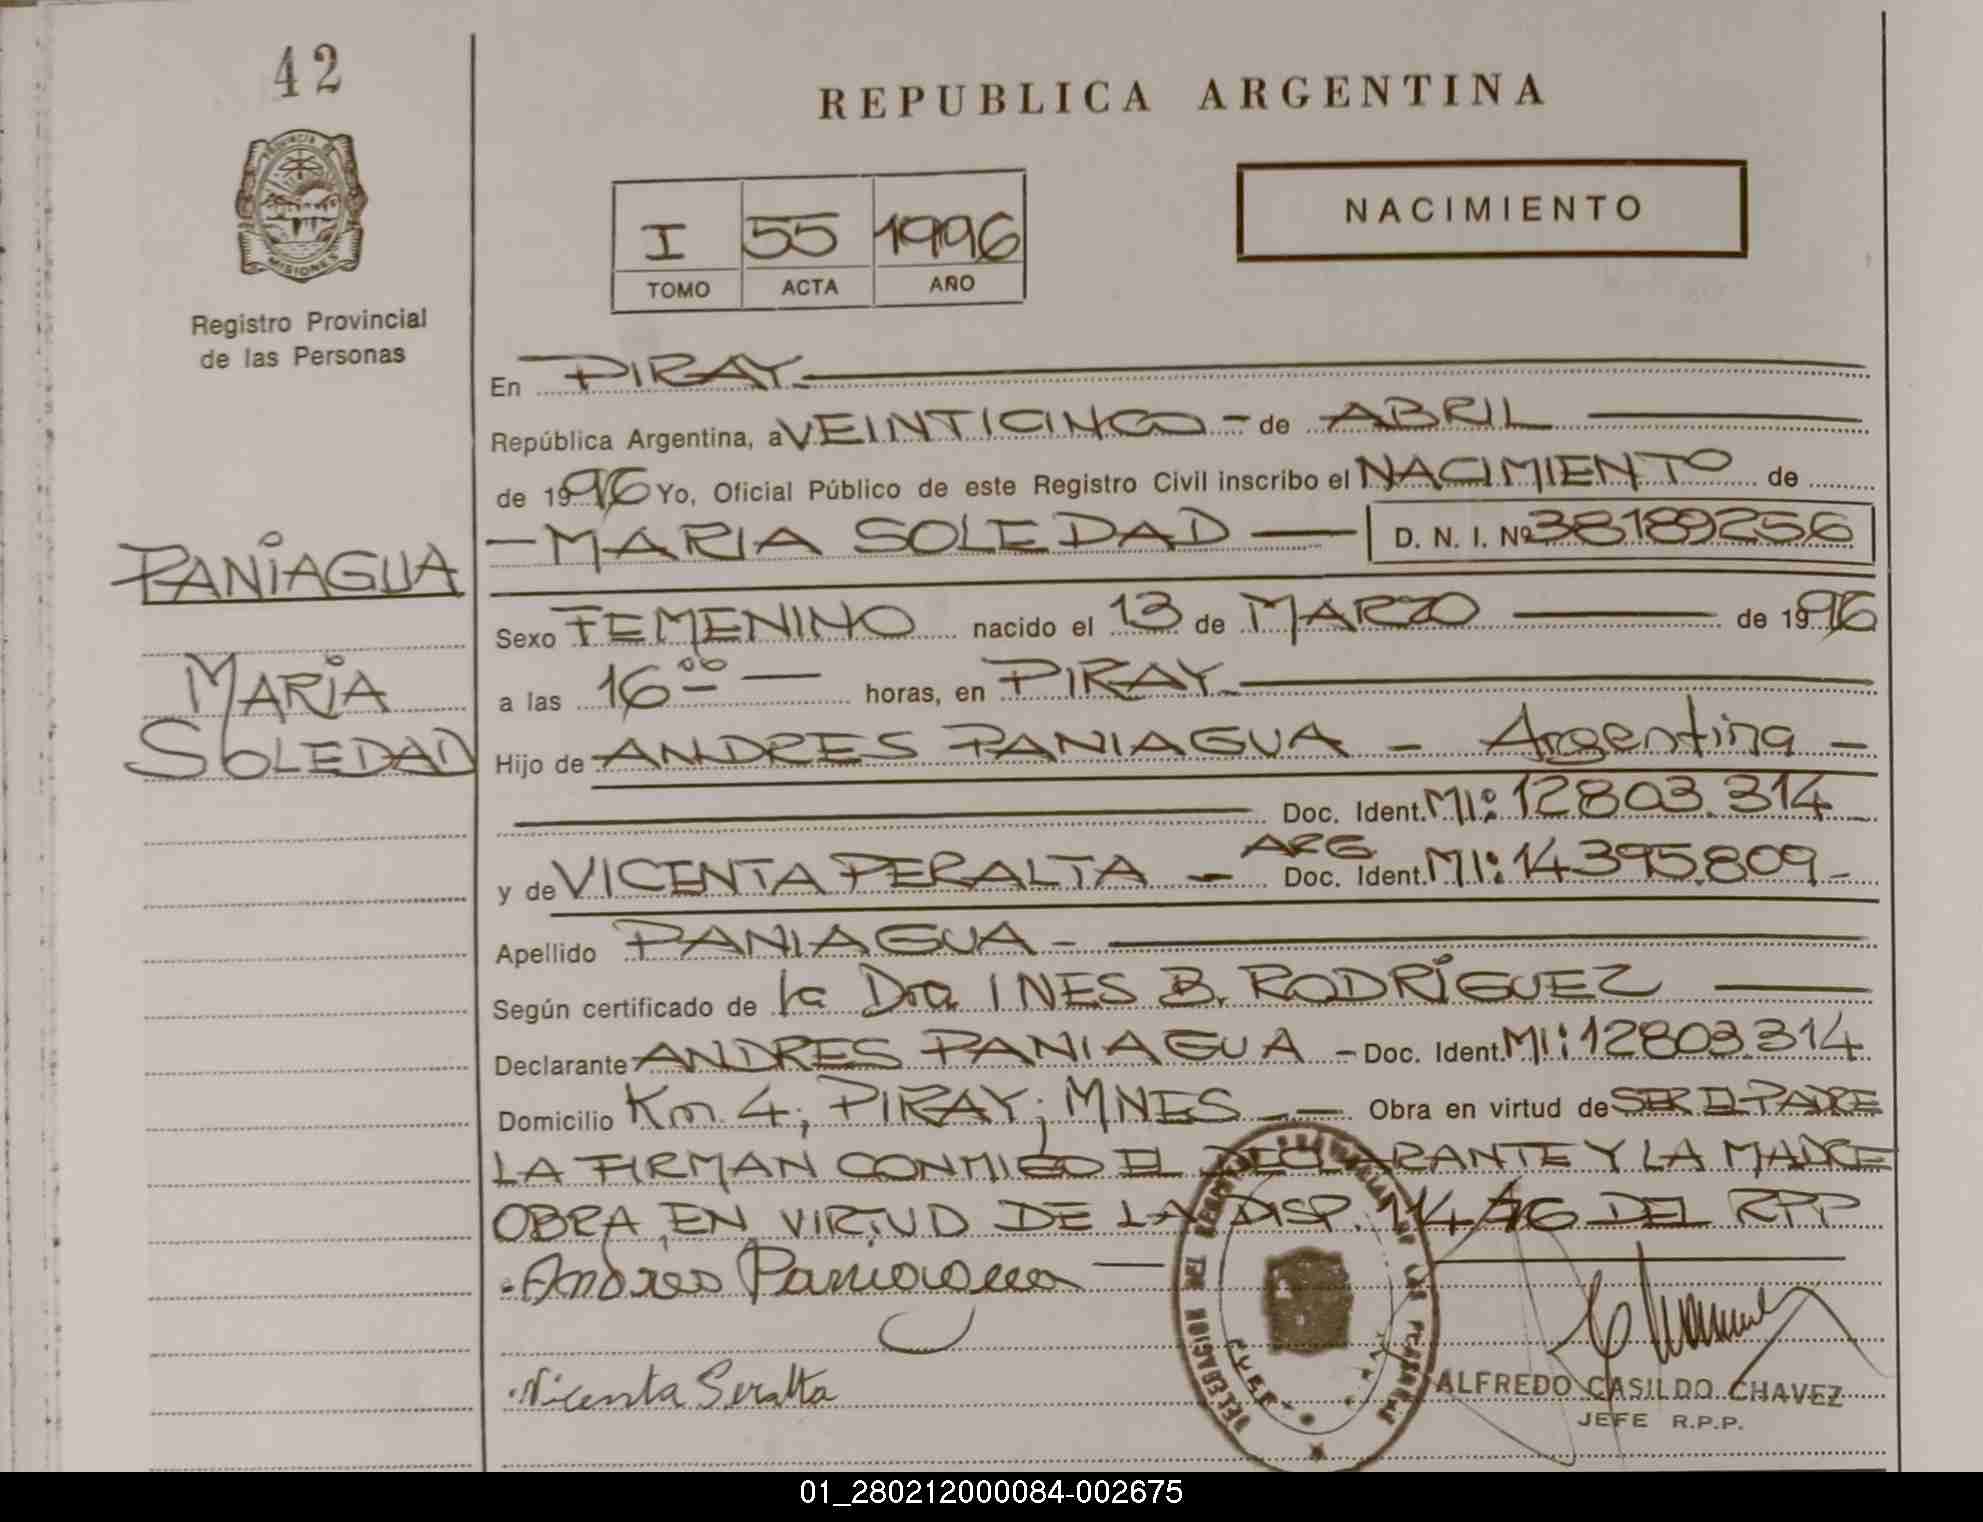 42
REPUBLICA ARGENTINA
PROVINCIA DE
MISIONES
Registro Provincial
de las Personas
I 55 1996
TOMO ACTA AÑO
NACIMIENTO
En PIRAY
República Argentina, a VEINTICINCO - de ABRIL
de 1996 Yo, Oficial Público de este Registro Civil inscribo el NACIMIENTO de
- MARIA SOLEDAD - D. N. I. Nº 38189256
PANIAGUA
MARIA
SOLEDAD
Sexo FEMENINO nacido el 13 de MARZO de 1996
a las 16 00 horas, en PIRAY
Hijo de ANDRES PANIAGUA - Argentina -
Doc. Ident. MI: 12803.314
y de VICENTA PERALTA - ARG Doc. Ident. MI: 14395.809 -
Apellido PANIAGUA -
Según certificado de la Dra. INES B. RODRÍGUEZ
Declarante ANDRES PANIAGUA - Doc. Ident. MI: 12803.314
Domicilio Km. 4; PIRAY; MNES Obra en virtud de SER EL PADRE
LA FIRMAN CONMIGO EL DECLARANTE Y LA MADRE
OBRA EN VIRTUD DE LA DISP. DEL RPP
Andres Paniagua
Vicenta Peralta
DELEGACION
ALFREDO CASILDO CHAVEZ
JEFE R.P.P.
01_280212000084-002675